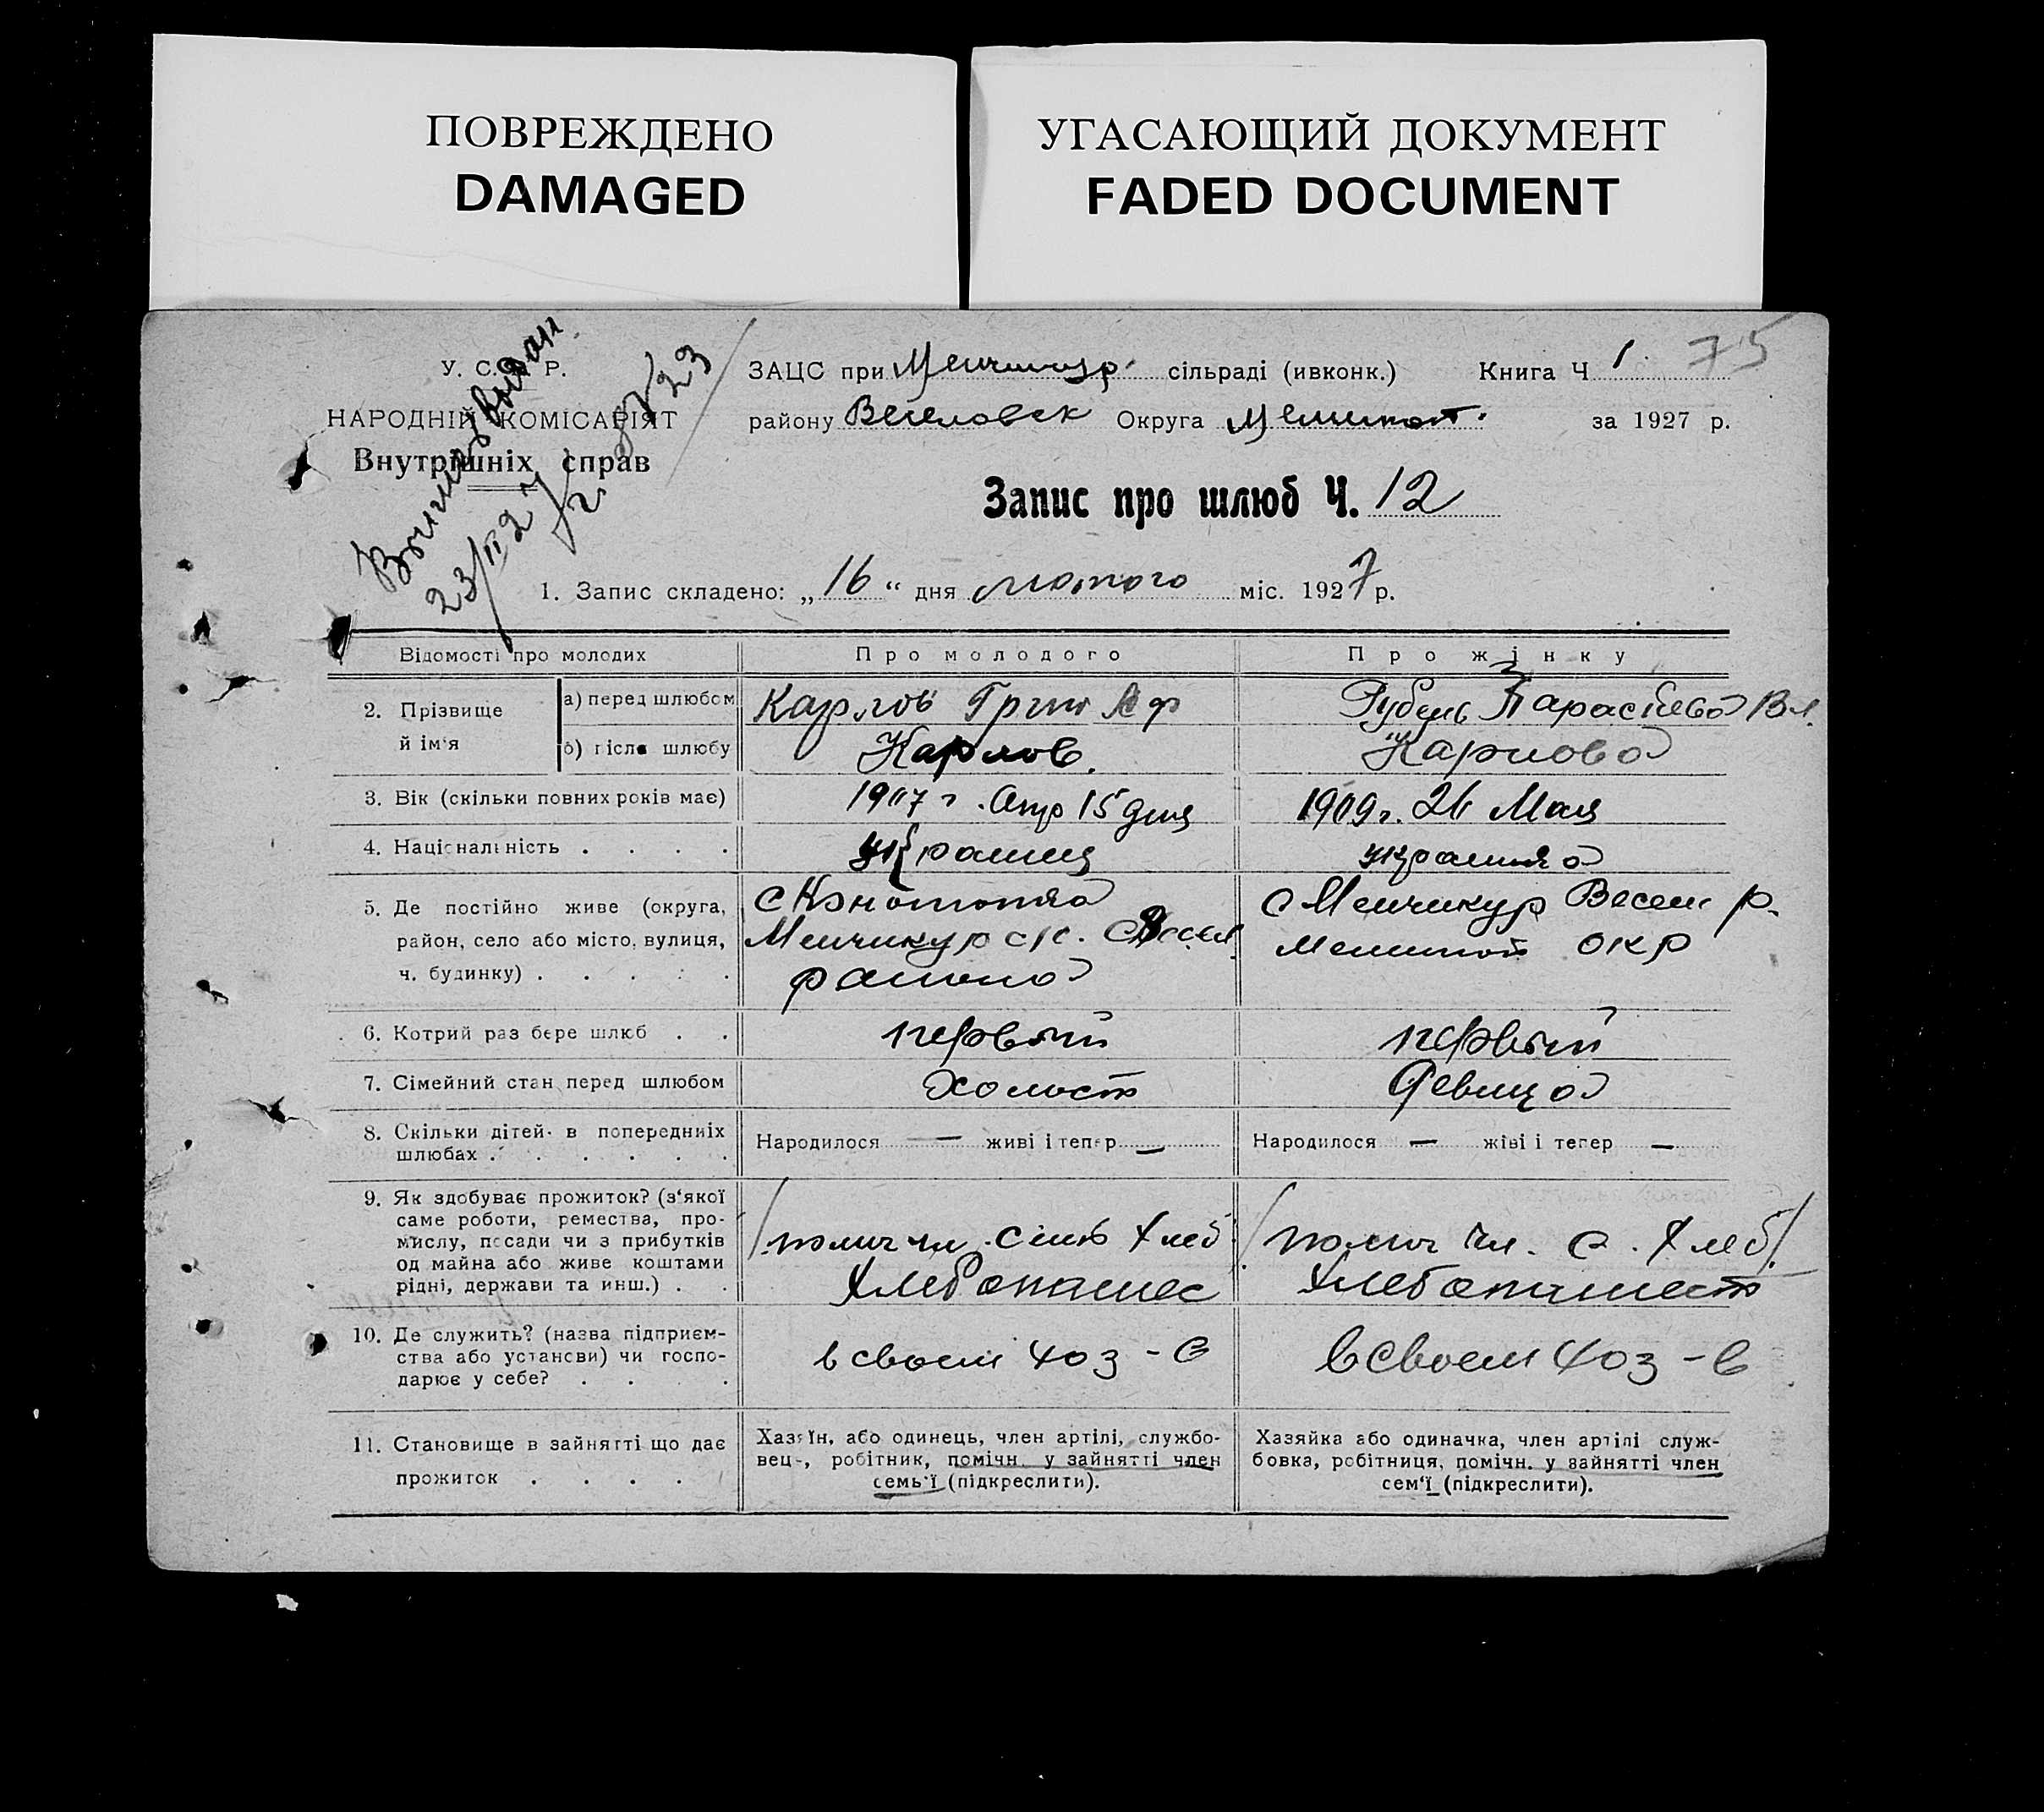 ПОВРЕЖДЕНО
DAMAGED
УГАСАЮЩИЙ ДОКУМЕНТ
FADED DOCUMENT
У. С. Р.
НАРОДНІЙ КОМІСАРІЯТ
Внутрішніх справ
23/II 27 г. № 23
ЗАЦС при Менчикур. сільраді (ивконк.) Книга Ч 1 75
району Веселовск Округа Мелитоп. за 1927 р.
Запис про шлюб Ч. 12
1. Запис складено: „16“ дня лютого міс. 1927 р.
Відомості про молодих
Про молодого
Про жінку
2. Прізвище й ім'я
а) перед шлюбом
Карлов Григ Аф
Параскева Вл.
б) після шлюбу
Карлов.
Карлова
3. Вік (скільки повних років має)
1907 г. Апр 15 дня
1909 г. 26 Мая
4. Національність . . . .
украинец
украинка
5. Де постійно живе (округа,
район, село або місто, вулиця,
ч. будинку) . . . . .
Менчикур с/с. Весел
района
с Менчикур Весел р.
Мелитоп окр
6. Котрий раз бере шлюб . .
первый
первый
7. Сімейний стан перед шлюбом
Холост
Девица
8. Скільки дітей в попередніх
шлюбах . . . . . .
Народилося — живі і тепер —
Народилося — жіві і тепер —
9. Як здобуває прожиток? (з‘якої
саме роботи, ремества, про-
мислу, посади чи з прибутків
од майна або живе коштами
рідні, держави та инш.) . .
/помич чл. сим Хлеб/
Хлебопашес
/помич чл. с. Хлеб/
Хлебопашест
10. Де служить? (назва підприєм-
ства або установи) чи госпо-
дарює у себе? . . . .
в своем хоз-в
в своем хоз-в
11. Становище в зайнятті що дає
прожиток . . . .
Хазяїн, або одинець, член артілі, службо-
вець, робітник, помічн. у зайнятті член
семь‘ї (підкреслити).
Хазяйка або одиначка, член артілі служ-
бовка, робітниця, помічн. у зайнятті член
сем‘ї (підкреслити).